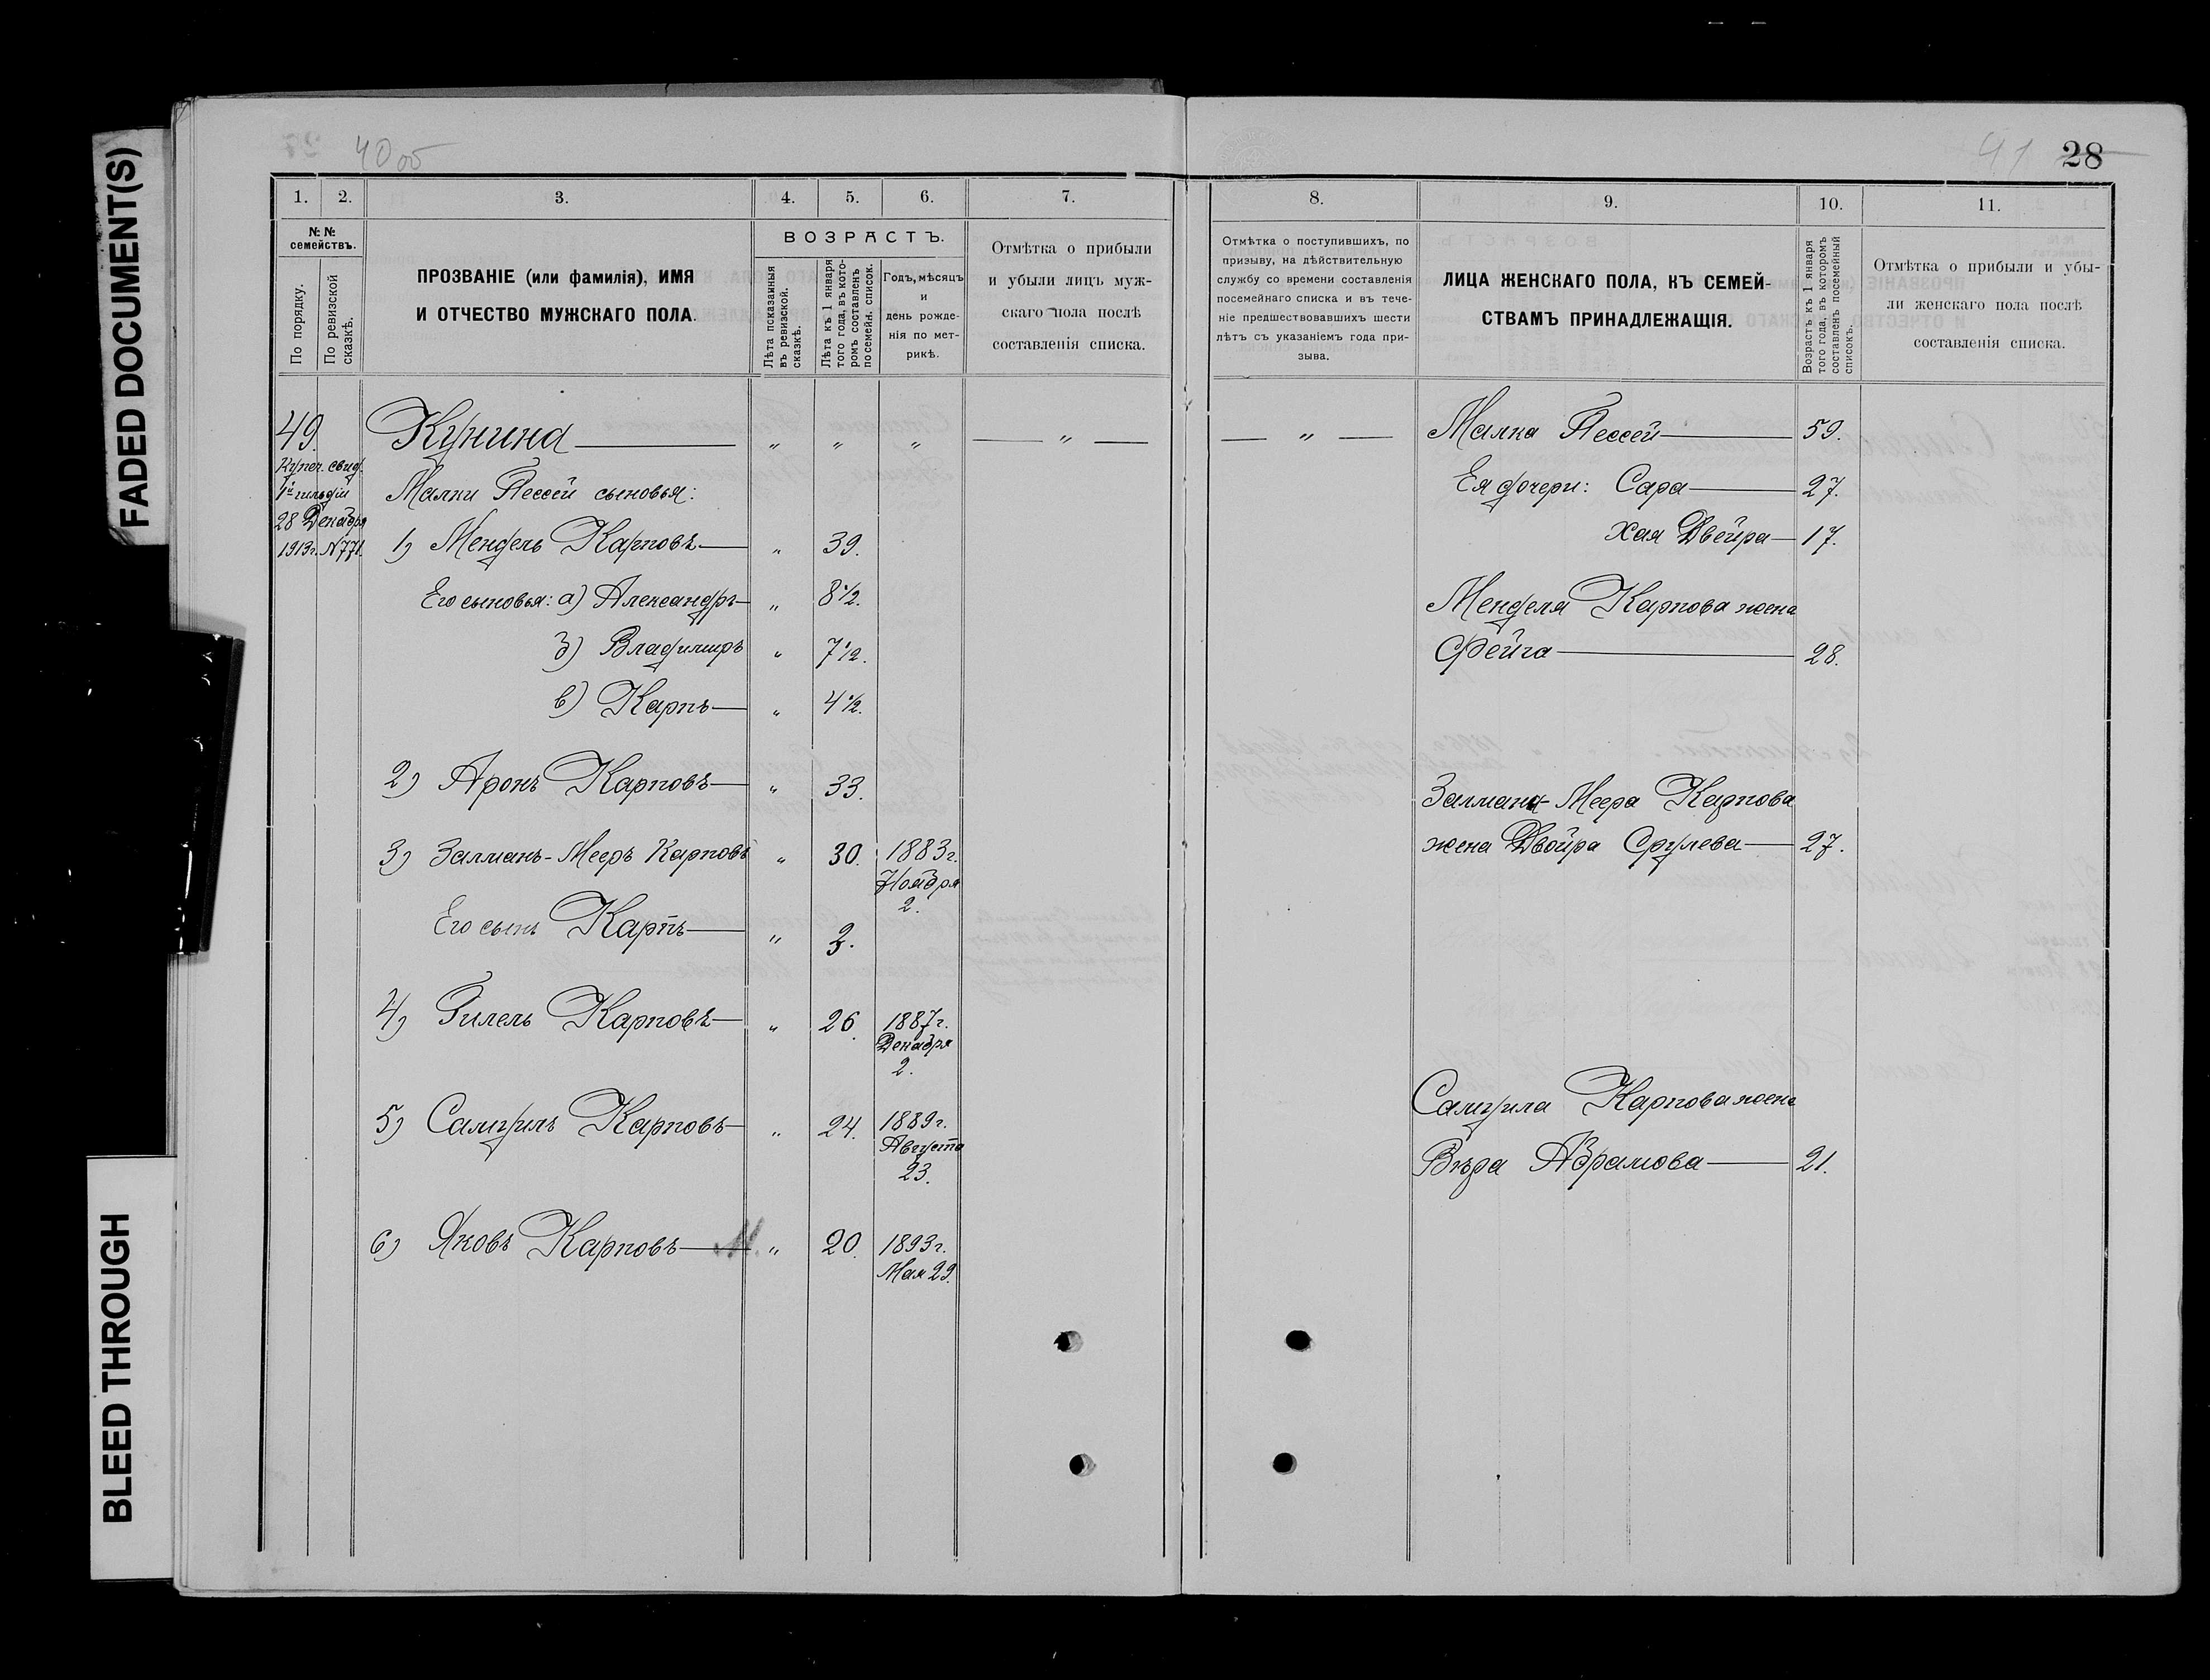 FADED DOCUMENT(S)
BLEED THROUGH
40 об
41 28
1. 2. 3. 4. 5. 6. 7.
№№ семействъ.
По порядку.
По ревизской сказкѣ.
ПРОЗВАНІЕ (или фамилія), ИМЯ
И ОТЧЕСТВО МУЖСКАГО ПОЛА.
ВОЗРАСТЪ.
Лѣта показанныя въ ревизской сказкѣ.
Лѣта къ 1 января того года, въ которомъ составленъ посемейн. список.
Годъ, мѣсяцъ
и
день рожде-
нія по мет-
рикѣ.
Отмѣтка о прибыли
и убыли лицъ муж-
скаго пола послѣ
составленія списка.
49. Кунина " " " "
Купеч. свид.
1й гильдіи
28 Декабря
1913г. N 771.
Малки Пессей сыновья:
1) Мендель Карповъ " 39.
Его сыновья: а) Александръ " 8½.
б) Владимиръ " 7½.
в) Карпъ " 4½.
2) Аронъ Карповъ " 33.
3) Залманъ-Мееръ Карповъ " 30. 1883г.
Ноября
2.
Его сынъ Карпъ " 3.
4) Гилель Карповъ " 26. 1887г.
Декабря
2.
5) Самуилъ Карповъ " 24. 1889г.
Августа
23.
6) Яковъ Карповъ " 20. 1893г.
Мая 29.
8. 9. 10. 11.
Отмѣтка о поступившихъ, по
призыву, на дѣйствительную
службу со времени составленія
посемейнаго списка и въ тече-
ніе предшествовавшихъ шести
лѣтъ съ указаніемъ года при-
зыва.
ЛИЦА ЖЕНСКАГО ПОЛА, КЪ СЕМЕЙ-
СТВАМЪ ПРИНАДЛЕЖАЩІЯ.
Возрастъ къ 1 января
того года, въ которомъ
составленъ посемейный
списокъ.
Отмѣтка о прибыли и убы-
ли женскаго пола послѣ
составленія списка.
" Малка Пессей 59.
Ея дочери: Сара 27.
Хая Двейра 17.
Менделя Карпова жена
Фейга 28.
Залмана-Меера Карпова
жена Двойра Срулева 27.
Самуила Карпова жена
Вѣра Абрамова 21.